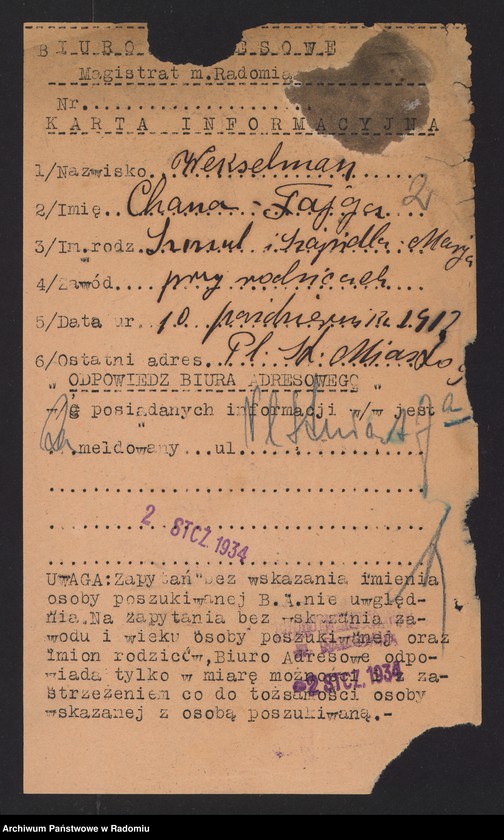 BIURO ESOWE
Magistrat m. Radomia
Nr.
KARTA INFORMACYJNA
1/Nazwisko Wekselman
2/Imię Chana - Fajga 2
3/Im. rodz. i Szajndla Marja
4/Zawód przy rodzicach
5/Data ur. 10 październik 1913
6/Ostatni adres. Pl. St. Miasto 9
"ODPOWIEDZ BIURA ADRESOWEGO"
W/g posiadanych informacji w/w jest
za meldowany ul
2 STCZ. 1934
UWAGA: Zapytań bez wskazania imienia
osoby poszukiwanej B.A. nie uwględ-
nia. Na zapytania bez wskazania za-
wodu i wieku osoby poszukiwanej oraz
imion rodziców, Biuro Adresowe odpo-
wiada tylko w miarę możności i z za-
strzeżeniem co do tożsamości osoby
wskazanej z osobą poszukiwaną.-
2 STCZ. 1934
Archiwum Państwowe w Radomiu